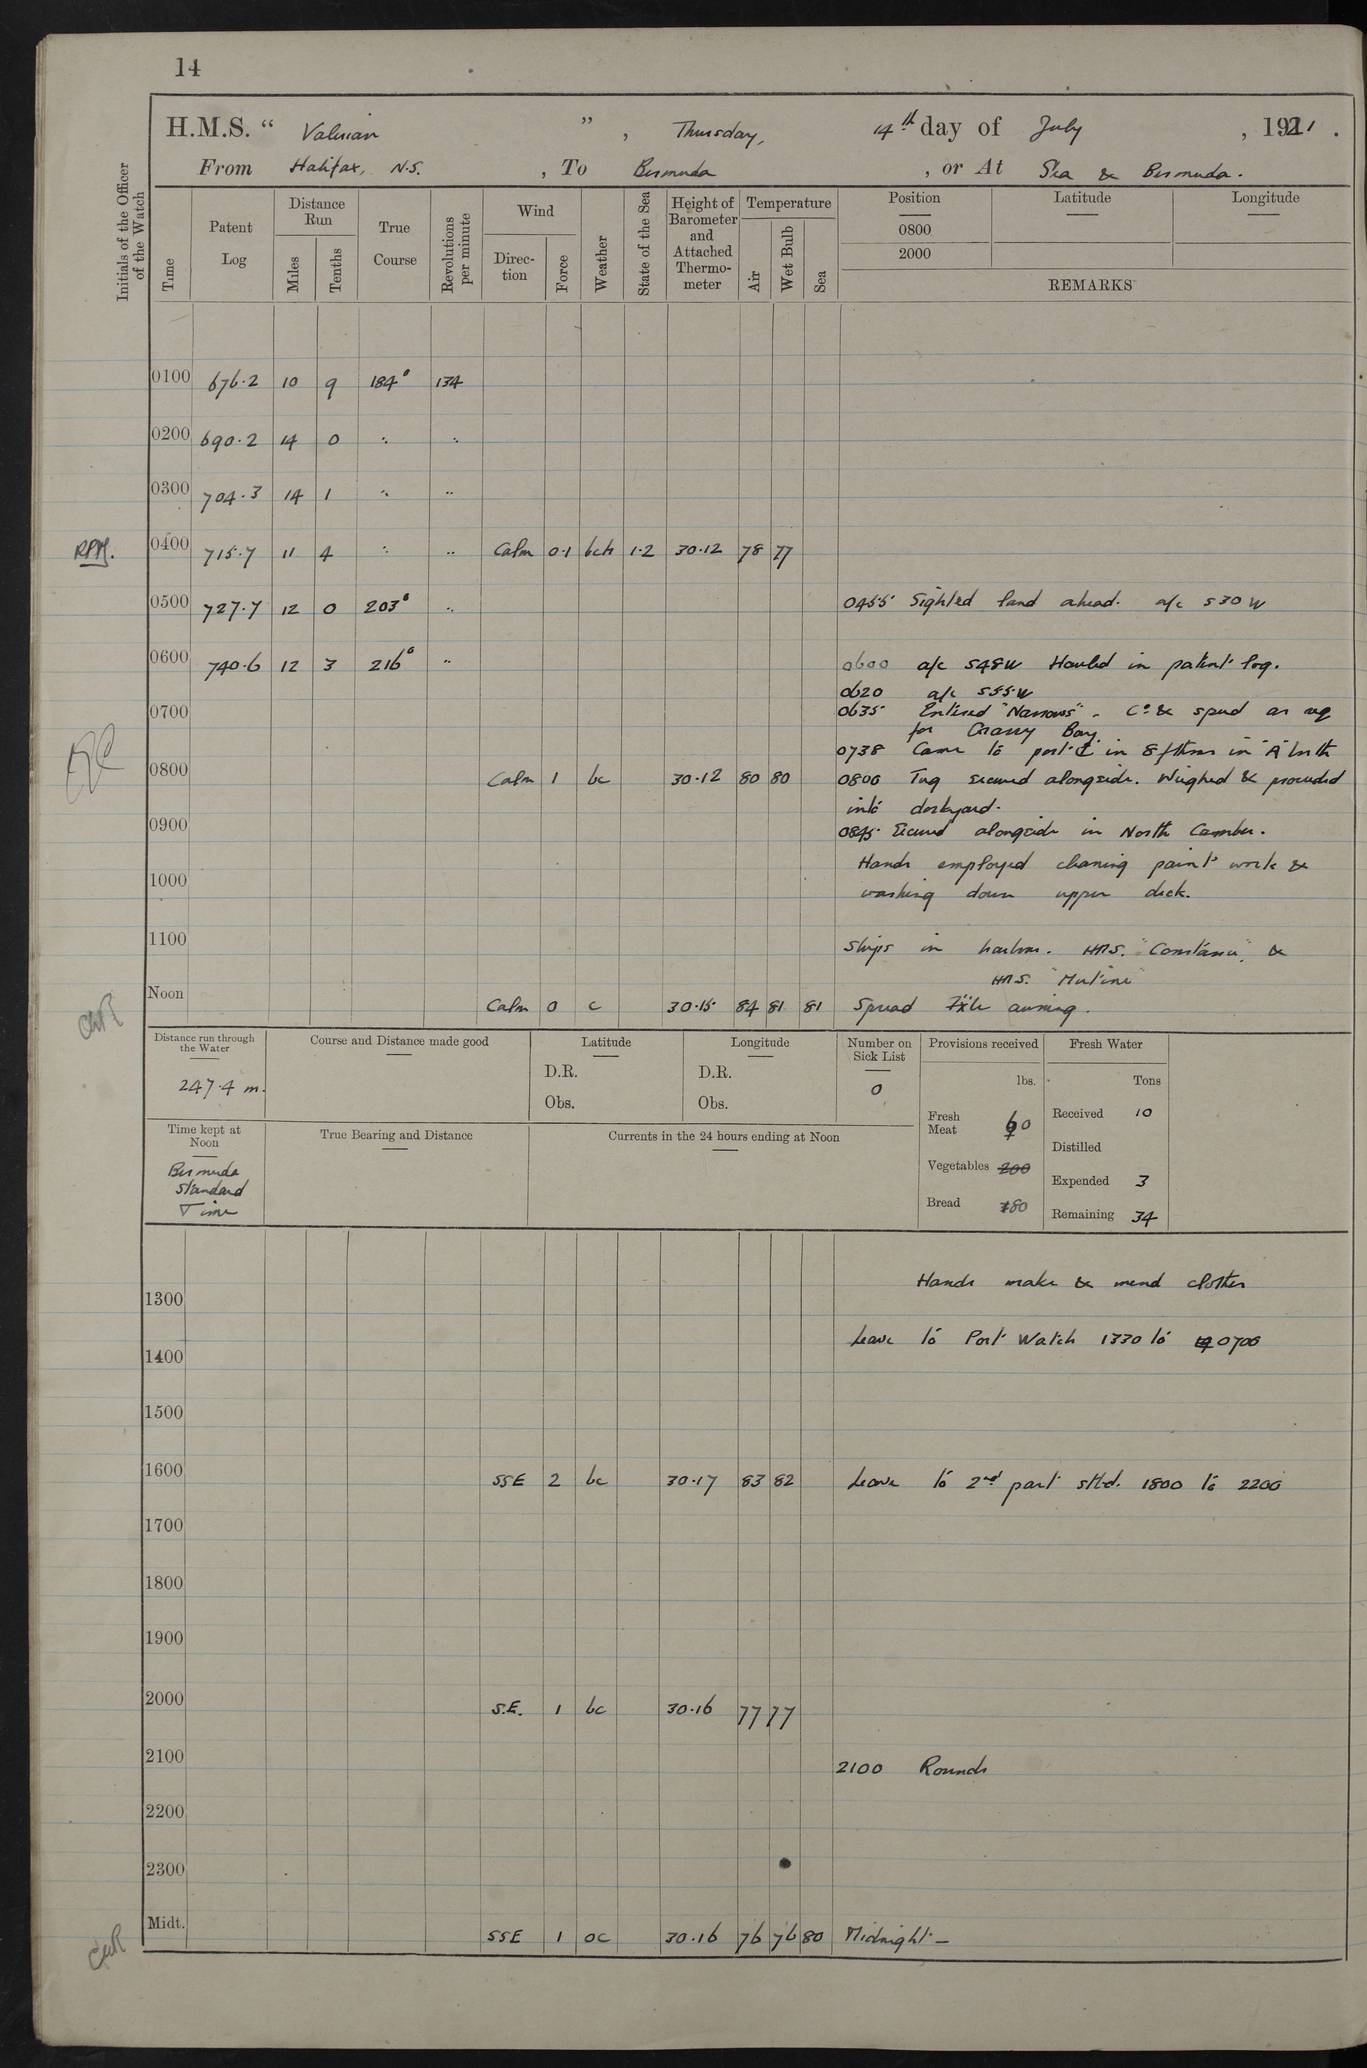 14
H.M.S. “ Valerian ” , Thursday, 14th day of July , 1921 .
From Halifax, N.S. , To Bermuda , or At Sea & Bermuda.
Initials of the Officer of the Watch
Time
Patent Log
Distance Run
Miles
Tenths
True Course
Revolutions per minute
Wind
Direc-tion
Force
Weather
State of the Sea
Height of Barometer and Attached Thermo-meter
Temperature
Air
Wet Bulb
Sea
Position
0800
2000
Latitude
Longitude
REMARKS
0100 676.2 10 9 184° 134
0200 690.2 14 0 " "
0300 704.3 14 1 " "
RPM. 0400 715.7 11 4 " " Calm 0.1 bch 1.2 30.12 78 77
0500 727.7 12 0 203° " 0455 Sighted land ahead. a/c S30W
0600 740.6 12 3 216° " 0600 a/c S48W Hauled in patent log.
0620 a/c S55W
0700 0635 Entered "Narrows" - Co & speed as req
for Grassy Bay.
0738 Came to port in 8 fthms in "A" berth
0800 Calm 1 bc 30.12 80 80 0800 Tug secured alongside. Weighed & proceeded
into dockyard.
0900 0845 Secured alongside in North Camber.
Hands employed cleaning paint work &
1000 washing down upper deck.
1100 Ships in harbour. HMS. "Constance", &
HMS. "Mutine"
Noon Calm 0 c 30.15 84 81 81 Spread Fxle awning.
Distance run through the Water
247.4 m.
Course and Distance made good
Latitude
D.R.
Obs.
Longitude
D.R.
Obs.
Number on Sick List
0
Provisions received
lbs.
Fresh Meat 60
Vegetables 200
Bread 180
Fresh Water
Tons
Received 10
Distilled
Expended 3
Remaining 34
Time kept at Noon
Bermuda
Standard
Time
True Bearing and Distance
Currents in the 24 hours ending at Noon
Hands make & mend clothes
1300
Leave to Port Watch 1330 to 0700
1400
1500
1600 SSE 2 bc 30.17 83 82 Leave to 2nd part stbd. 1800 to 2200
1700
1800
1900
2000 S.E. 1 bc 30.16 77 77
2100 2100 Rounds
2200
2300
Midt. SSE 1 oc 30.16 76 76 80 Midnight -